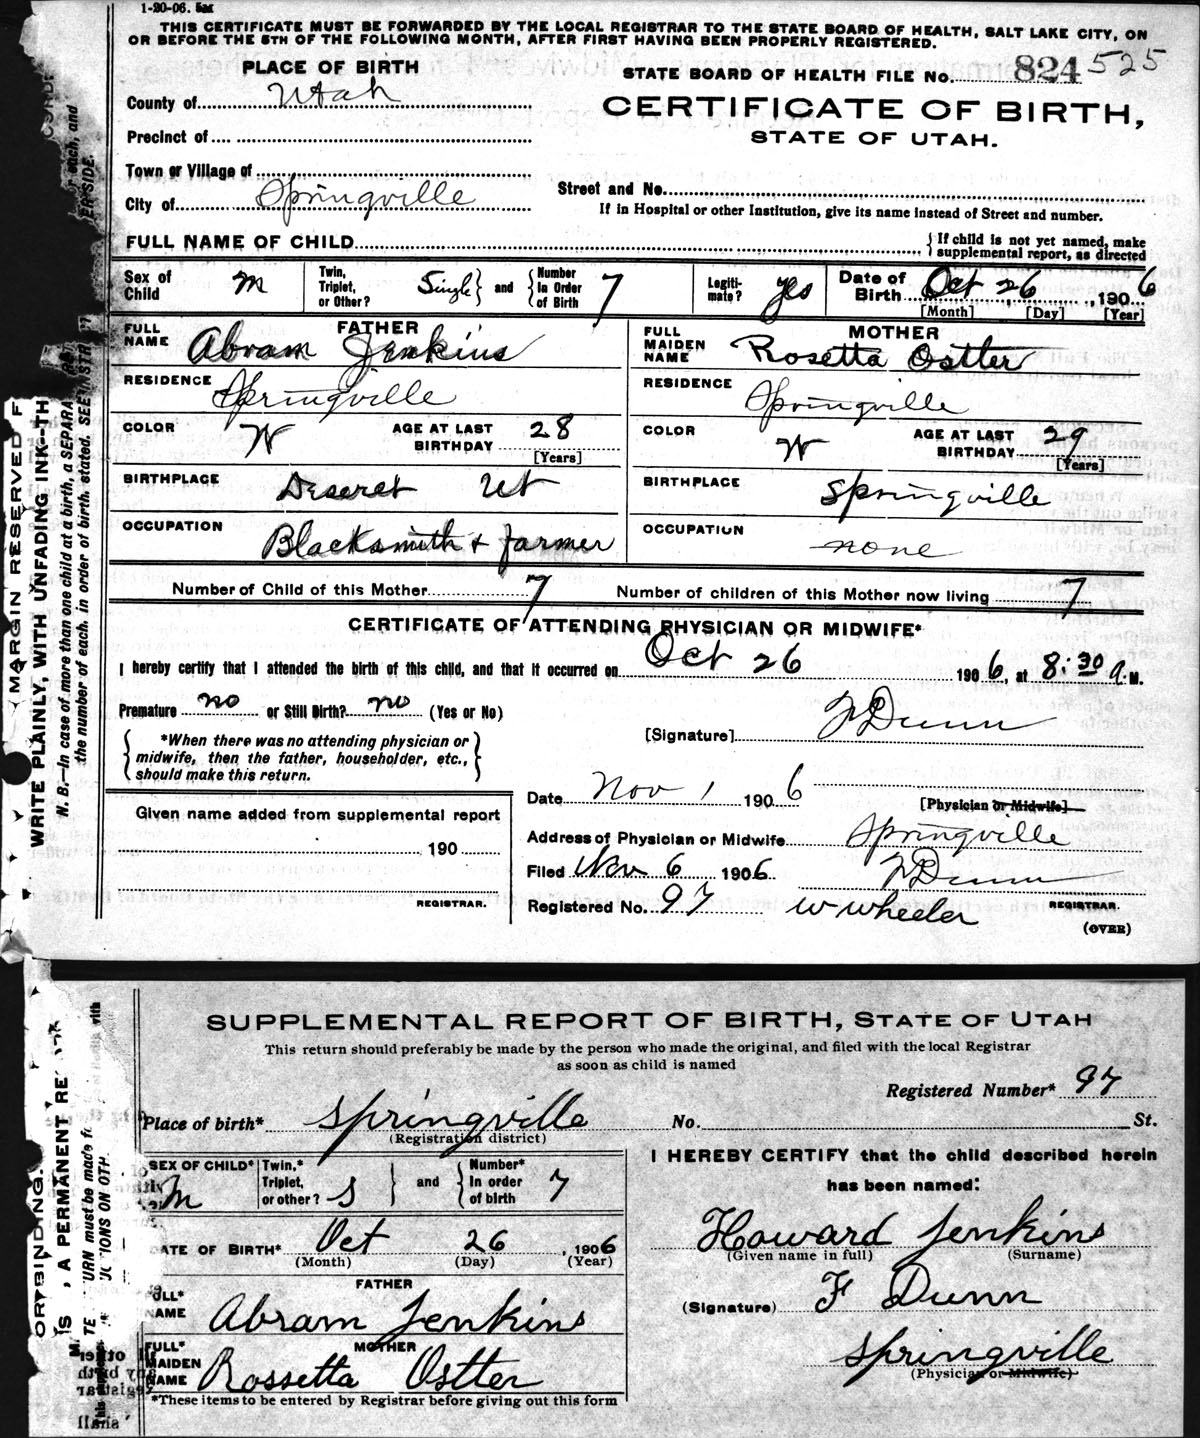 1-20-06.
THIS CERTIFICATE MUST BE FORWARDED BY THE LOCAL REGISTRAR TO THE STATE BOARD OF HEALTH, SALT LAKE CITY, ON
OR BEFORE THE 5TH OF THE FOLLOWING MONTH, AFTER FIRST HAVING BEEN PROPERLY REGISTERED.
PLACE OF BIRTH
STATE BOARD OF HEALTH FILE NO. 824 525
County of Utah
CERTIFICATE OF BIRTH,
STATE OF UTAH.
Precinct of
Town or Village of
City of Springville
Street and No.
If in Hospital or other Institution, give its name instead of Street and number.
FULL NAME OF CHILD
{ If child is not yet named, make
supplemental report, as directed
Sex of Child M
Twin, Triplet, or Other? Single } and { Number In Order of Birth 7
Legiti-mate? yes
Date of Birth Oct 26, 1906
[Month] [Day] [Year]
FATHER
FULL NAME Abram Jenkins
RESIDENCE Springville
COLOR W AGE AT LAST BIRTHDAY 28 [Years]
BIRTHPLACE Deseret Ut
OCCUPATION Blacksmith + farmer
MOTHER
FULL MAIDEN NAME Rosetta Ostler
RESIDENCE Springville
COLOR W AGE AT LAST BIRTHDAY 29 [Years]
BIRTHPLACE Springville
OCCUPATION none
Number of Child of this Mother 7 Number of children of this Mother now living 7
CERTIFICATE OF ATTENDING PHYSICIAN OR MIDWIFE*
I hereby certify that I attended the birth of this child, and that it occurred on Oct 26 1906, at 8:30 a.M.
Premature no or Still Birth? no (Yes or No)
[Signature] F Dunn
{ *When there was no attending physician or
midwife, then the father, householder, etc.,
should make this return. }
Date Nov 1 1906
[Physician or Midwife]
Given name added from supplemental report
190
REGISTRAR.
Address of Physician or Midwife Springville
Filed Nov 6 1906 F Dunn
REGISTRAR.
Registered No. 97 W Wheeler
(OVER)
MARGIN RESERVED F
WRITE PLAINLY, WITH UNFADING INK--TH
N. B.—In case of more than one child at a birth, a SEPARA
each, and
the number of each, in order of birth, stated. SEE INSTR
ERSIDE.
SUPPLEMENTAL REPORT OF BIRTH, STATE OF UTAH
This return should preferably be made by the person who made the original, and filed with the local Registrar
as soon as child is named
Registered Number* 97
Place of birth* Springville
(Registration district)
No. St.
SEX OF CHILD* M
Twin,* Triplet, or other? S } and { Number* In order of birth 7
DATE OF BIRTH* Oct 26, 1906
(Month) (Day) (Year)
FATHER
FULL* NAME Abram Jenkins
MOTHER
FULL* MAIDEN NAME Rossetta Ostler
*These items to be entered by Registrar before giving out this form
I HEREBY CERTIFY that the child described herein
has been named:
Howard Jenkins
(Given name in full) (Surname)
(Signature) F Dunn
Springville
(Physician or Midwife)
OR BINDING.
IS A PERMANENT RE
URN must be made f
with
IONS ON OTH